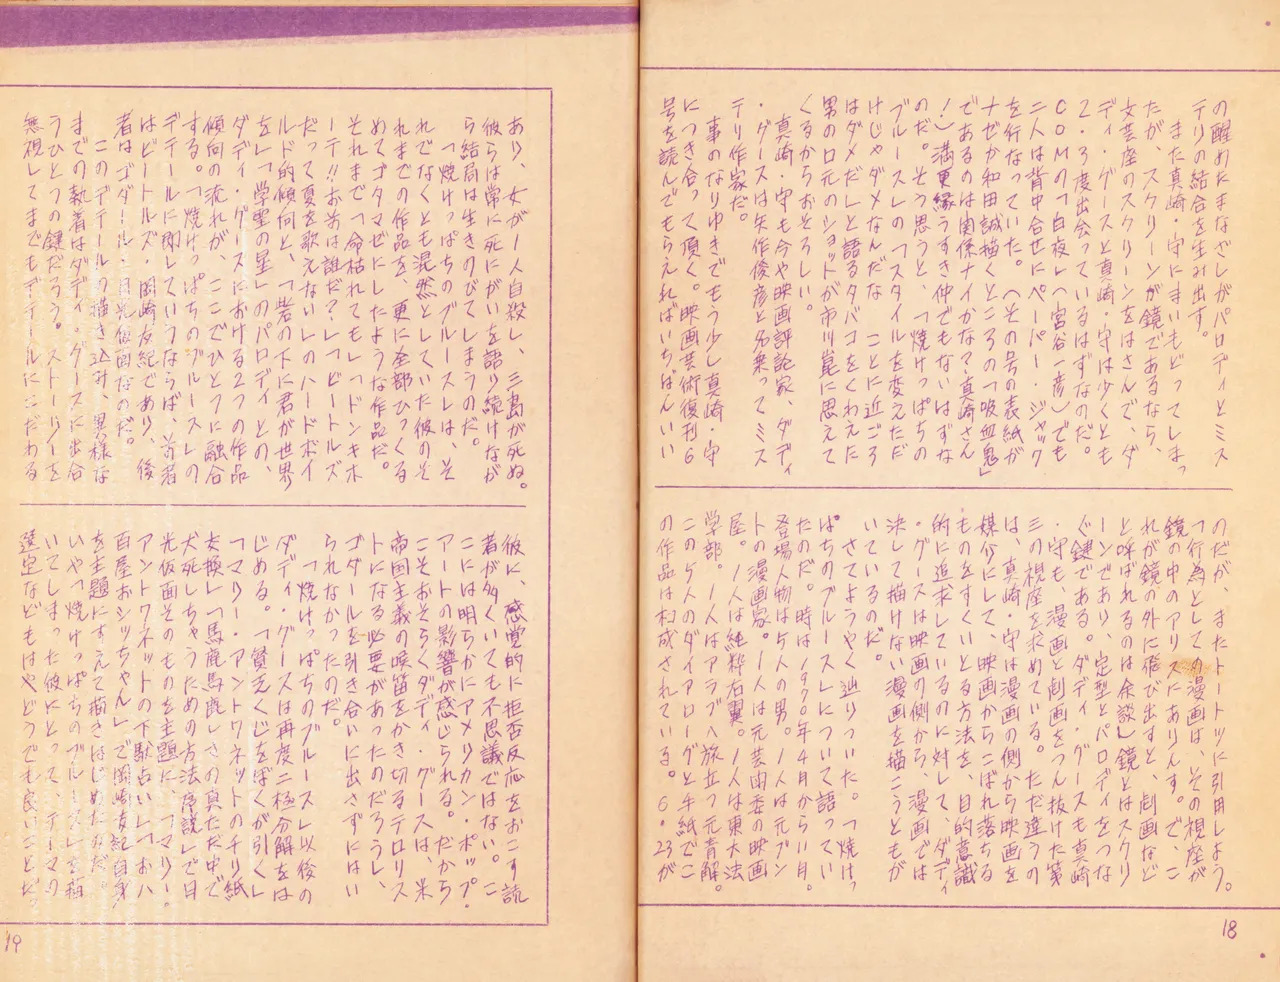 の醒めたまなざしがパロディとミス
テリの結合を生み出す。
また真崎・守にまいもどってしまっ
たが、スクリーンが鏡であるなら、
女芸座のスクリーンをはさんで、ダ
ディ・グースと真崎・守は少くとも
2・3度出会っているはずなのだ。
COMの「白夜」（宮谷一彦）でも
二人は背中合せにペーパー・ジャック
を行なっていた。（その号の表紙が
ナゼか和田誠描くところの「吸血鬼」
であるのは関係ナイかな？真崎さん
！）満更縁うすき仲でもないはずな
のだ。そう思うと、「焼けっぱちの
ブルースレの「スタイルを変えただ
けじゃダメなんだな ことに近ごろ
はダメだ」と語るタバコをくわえた
男の口元のショットが市川崑に思えて
くるからおそろしい。
真崎・守も今や映画評論家、ダディ
・グースは矢作俊彦と名乗ってミス
テリ作家だ。
事のなりゆきでもう少し真崎・守
につき合って頂く。映画芸術復刊6
号を読んでもらえればいちばんいい
のだが、またトートツに引用しよう。
「行為としての漫画は、その視座が
鏡の中のアリスにありんす。で、こ
れが鏡の外に飛び出すと、劇画など
と呼ばれるのは余談」鏡とはスクリ
ーンであり、定型とパロディをつな
ぐ鍵である。ダディ・グースも真崎
・守も、漫画と劇画をつん抜けた第
三の視座を求めている。ただ違うの
は、真崎・守は漫画の側から映画を
媒介にして、映画からこぼれ落ちる
ものをすくいとる方法を、目的意識
的に追求しているのに対して、ダディ
・グースは映画の側から、漫画では
決して描けない漫画を描こうともが
いているのだ。
さてようやく辿りついた。「焼けっ
ぱちのブルースレについて語ってい
たのだ。時は1970年4月から11月。
登場人物は5人の男。1人は元ブン
トの漫画家。1人は元芸闘委の映画
屋。1人は純粋右翼。1人は東大法
学部。1人はアラブへ旅立つ元青解。
この5人のダイアローグと手紙でこ
の作品は構成されている。6・23が
18
あり、女が1人自殺し、三島が死ぬ。
彼らは常に死にがいを語り続けなが
ら結局は生きのびてしまうのだ。
「焼けっぱちのブルースレは、そ
れでなくとも混然としていた彼のそ
れまでの作品を、更に全部ひっくる
めてゴタマゼにしたような作品だ。
それまで「命枯れてもレ「ドンキホ
ーテ!!お前は誰だ？レ「ビートルズ
だって夏を歌えないレのハードボイ
ルド的傾向と、「岩の下に君が世界
をレ「学聖の星」のパロディとの、
ダディ・グースにおける2つの作品
傾向の流れが、ここでひとつに融合
する。「焼けっぱちのブルースレの
デテールに即していうならば、前者
はビートルズ・岡崎友紀であり、後
者はゴダール・月光仮面なのだ。
このデテールの描き込み、異様な
までの執着はダディ・グースに出合
うひとつの鍵だろう。ストーリーを
無視してまでもデテールにこだわる
彼に、感覚的に拒否反応をおこす読
者が多くいても不思議ではない。こ
こには明らかにアメリカン・ポップ・
アートの影響が感じられる。だから
こそおそらくダディ・グースは、米
帝国主義の喉笛をかき切るテロリス
トになる必要があったのだろうし、
ゴダールを引き合いに出さずにはい
られなかったのだ。
「焼けっぱちのブルースレ以後の
ダディ・グースは再度二極分解をは
じめる。「貧乏くじをぼくが引くレ
「マリー・アントワネットのチリ紙
交換レ「馬鹿馬鹿しさの真ただ中で
犬死しちゃうための方法序説レで月
光仮面そのものを主題に、「マリー・
アントワネットの下駄占いレ「おハ
百屋おシッちゃん」で岡崎友紀自身
を主題にすえて描きはじめたのだ。
いや「焼けっぱちのブルースレを描
いてしまった彼にとって、テーマの
選定などもはやどうでも良いことだっ
19